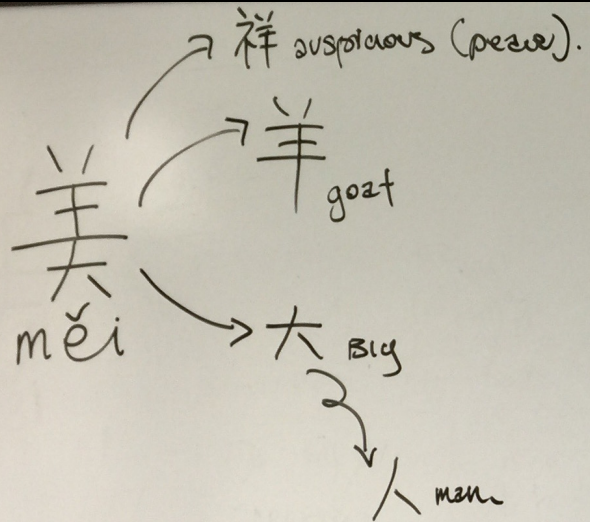 祥 auspicious (peace).
羊 goat
美
měi
大 Big
人 man